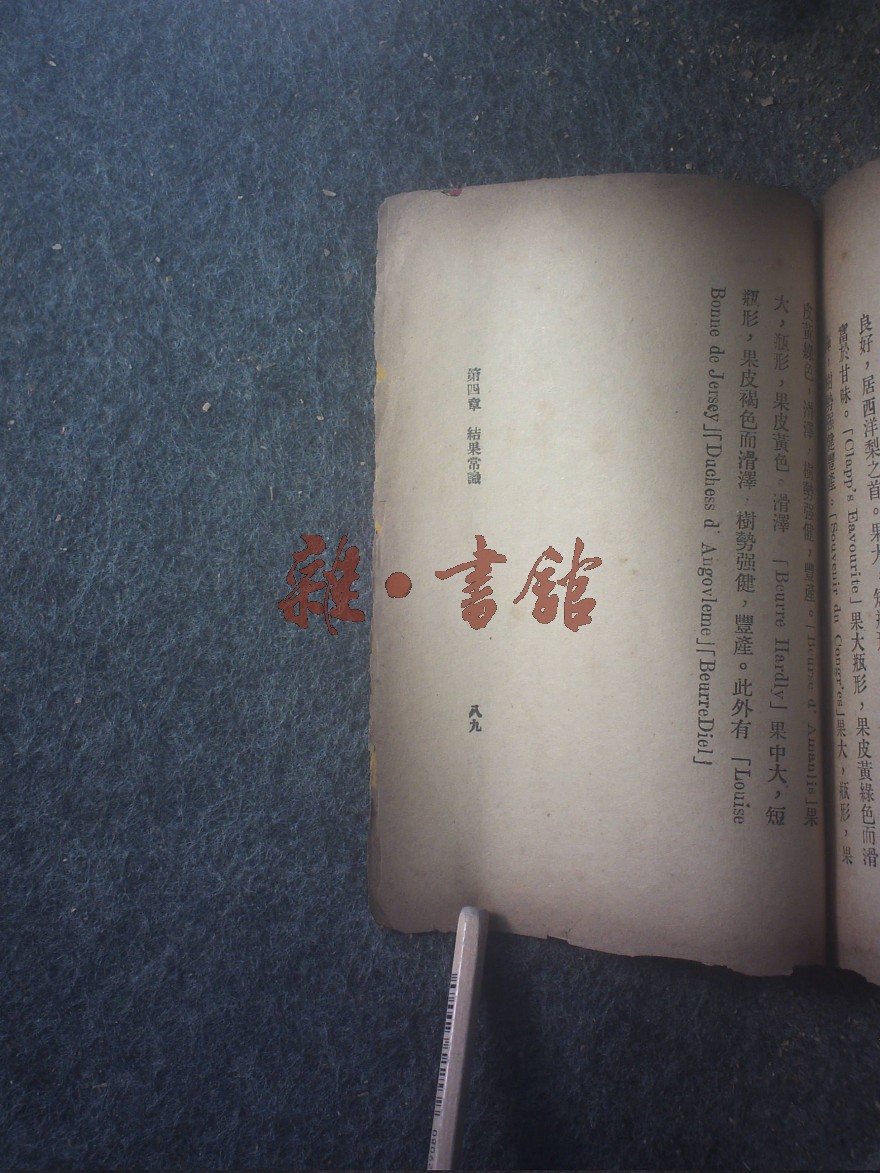 良好，居西洋梨之首。果大，短瓶形，
富於甘味。「Clapp's Eavourite」果大瓶形，果皮黃綠色而滑
豐產。「Souvenir du Congr'es」果大，瓶形，果
皮黃綠色，滑澤，樹勢强健，豐產。「Beurse d' Amaulis」果
大，瓶形，果皮黃色。滑澤 「Beurre Hardly」果中大，短
瓶形，果皮褐色而滑澤，樹勢强健，豐產。此外有「Louise
Bonne de Jersey」「Duchess d' Augovleme」「BeurreDiel」
第四章 結果常識
八九
雜·書館